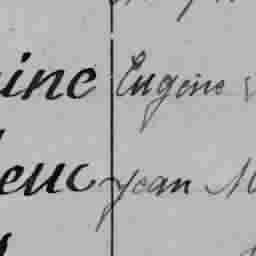 ine Eugène
leuc Jean M